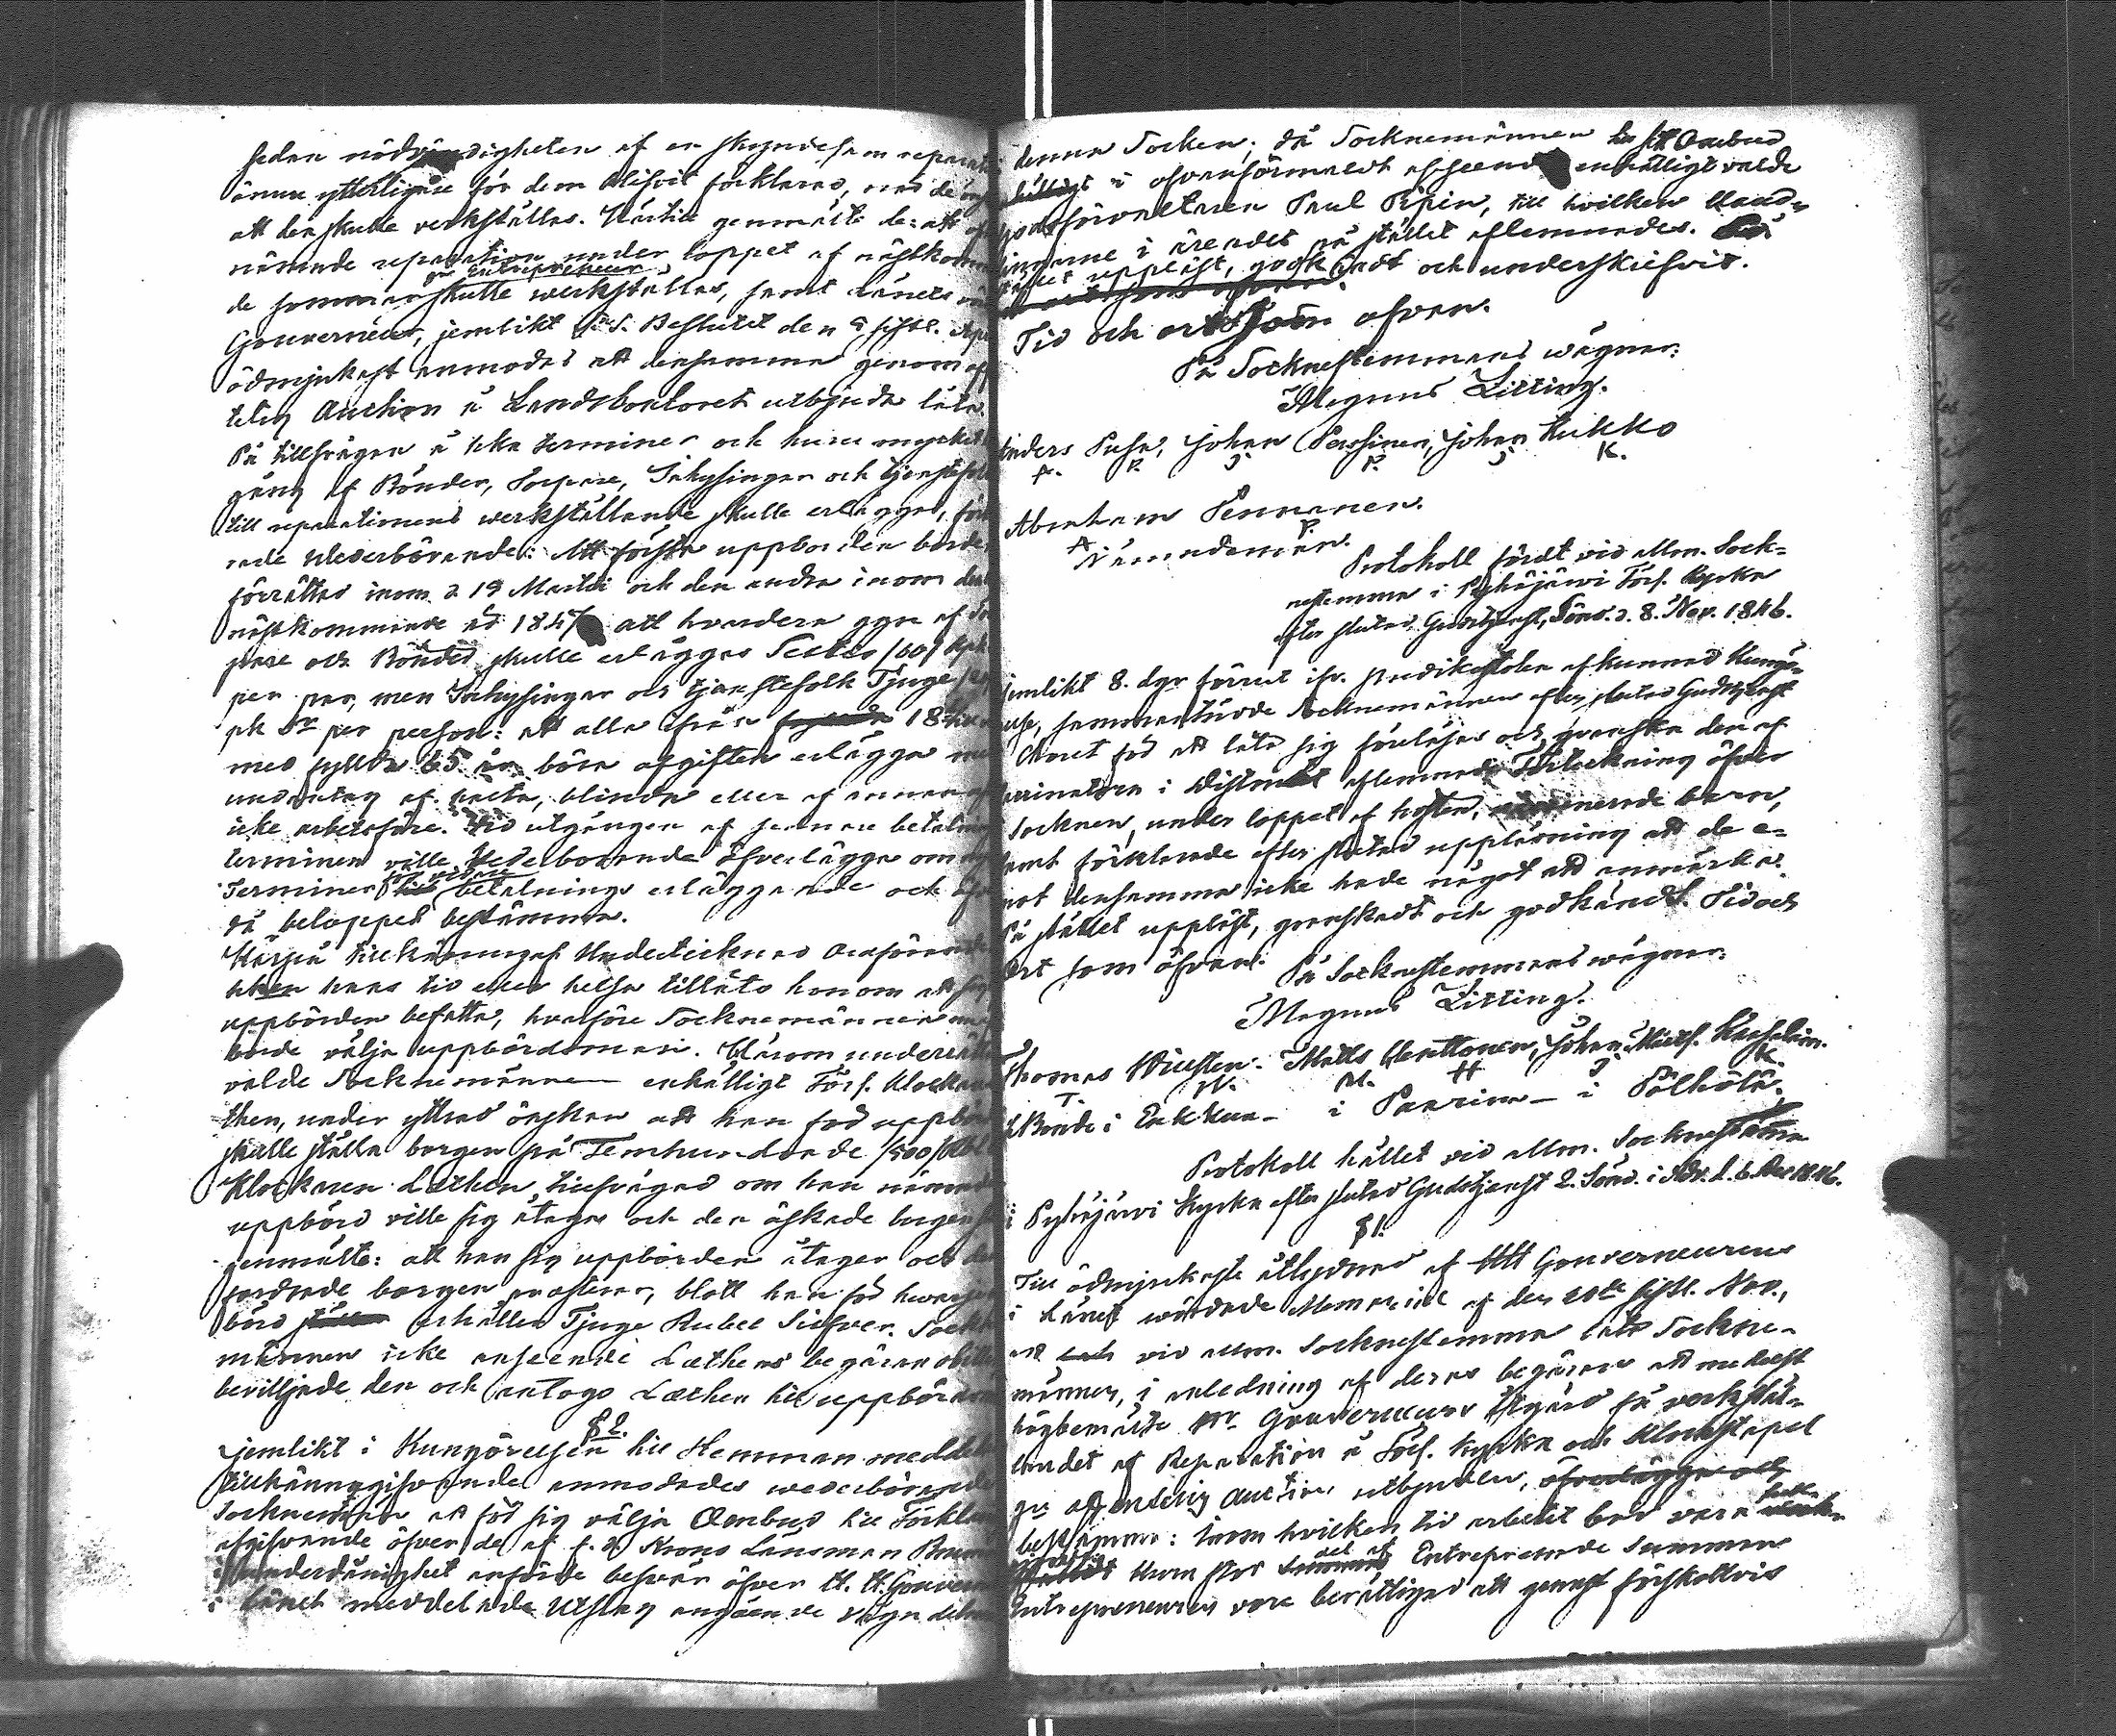 sedan nödvändigheten af en skyndesam reparati
ännu ytterligare för dem blifvit förklarad,
att den skulle verkställas. Härtill genmälte de: att
nämnde reparation under loppet af nästkomman
de sommar skulle genom Entrepreneur werkställas, samt Länets
Gouverneur, jemlikt S. S. Beslutet den sistl.
ödmjukast anmodas att densamma genom
telig Auction å Landskontoret utbjuda låta.
På tillfrågan å hka terminer och huru mycket
gång af Bönder, Torpare, Inhysingar och tjenstefolk
till reparationens werkställande skulle erläggas,
rade Wederbörande: Att första uppbörden borde
förrättas inom d 19 Martii och den andra inom
nästkommande år 1847 att hvardera ggn af
pare och Bönder skulle erläggas Sextio /60/ kpk
per par, men Inhysingar och tjenstefolk Tjuge
pk Sr per person: att alla ifrån 18
med fyllda 65 år böra afgiften erlägga med
undantag af halta, blinda eller af annan
icke arbetsföre. Vid utgången af sednare betalnings
terminen ville Wederbörande öfverlägga om
Terminer för vidare betalnings erläggande och
då beloppet bestämma.
Härpå tillkännagaf Undertecknad Ordförande
hans tid eller helsa tilläto honom att sig
uppbörden befatta, hvarföre Socknemännen
borde välja uppbördsman. Härom underrättade
valde Socknemännen enhälligt Förs. Klockaren
then, under yttrad önskan att han för uppbörden
skulle ställa borgen på Femhundrade /500/ Rbl
Klockaren Læthen tillfrågad om han nämnde
uppbörd ville sig åtaga och den äskade borgen
genmälte: att han sig uppbörden åtager och den
fordrade borgen præsterar, blott han för hvarje
börd erhåller Tjuge Rubel Silfver. Socken
männen icke anseende Læthens begäran obillig
beviljade den och antogs Læthen till uppbördsman
§ 2.
Jemlikt i Kungörelsen till Hemman meddelt
tillkännagifvande anmodades wederbörande
Socknemän att för sig välja Ombud till Förklarings
afgifvande öfver de af f. d Krono Länsman
i underdånighet anförde besvär öfver H. H. Gouverneurens
i Länet meddelade Utslag angående
denna Socken; då Socknemännen till sitt Ombud
i ofvanförmäldt afseende enhälligt valde
Godsförvaltaren Paul Pipin, till hvilken Hand-
lingarne i ärendet på stället aflemnades.
stället uppläst, godkändt och underskrifvit.
Tid och ort som ofvan.
På Socknestemmans wägnar:
Magnus Litting.
Anders Puha, Johan Parssinen, Johan Kukko
A. P. J. P. J K.
Abraham Pennanen.
A P.
Nämndemän.
Protokoll fördt vid allm. Sock-
nestemma i Pyhäjärvi Förs. Kyrka
efter slutad Gudstjenst, Sönd. d. 8. Nov. 1846.
Jemlikt 8. dgr förrut ifr. predikstolen afkunnad Kungö-
relse, sammanträdde Socknemännen efter slutad Gudstjenst
i Choret för att låta sig föreläsas och granska den af
Vaccinatorn i Distriktet aflemnade Förteckning öfver
i Socknen, under loppet af hösten, vaccinerade barn,
samt förklarade efter slutad uppläsning att de e-
mot densamma icke hade något att anmärka.
På stället uppläst, granskadt och godkändt. Tid och
Ort som öfvan. På Socknestemmans wägnar:
Magnus Litting.
Thomas Wiksten. Matts Henttonen, Johan Miels.
T. W. M. H J. K
Bonde i i Paarina - i Pölhölä.
Protokoll hållet vid allm. Socknestämma
i Pyhäjärvi Kyrka efter slutad Gudstjenst 2. Sönd. i Adv. d. 6. Dec 1846.
§ 1.
Till ödmjukaste åtlydnad af Herr Gouverneurens
i Länet wördade Memorial af den 20de sistl. Nov.,
att vid allm. Socknestemma låta Sockne-
männen, i anledning af deras begäran att medelst
högbemälte Hr. Gouverneurs åtgärd få verkstäl-
landet af Reparation å Förs. Kyrka och Klockstapel
ge offentelig Auction utbjuden, öfverlägga och
bestämma: inom hvilken tid arbetet bör vara
Huru stor del af Entreprenade Summan
Entrepreneuren vore berättigad att genast förskottvis